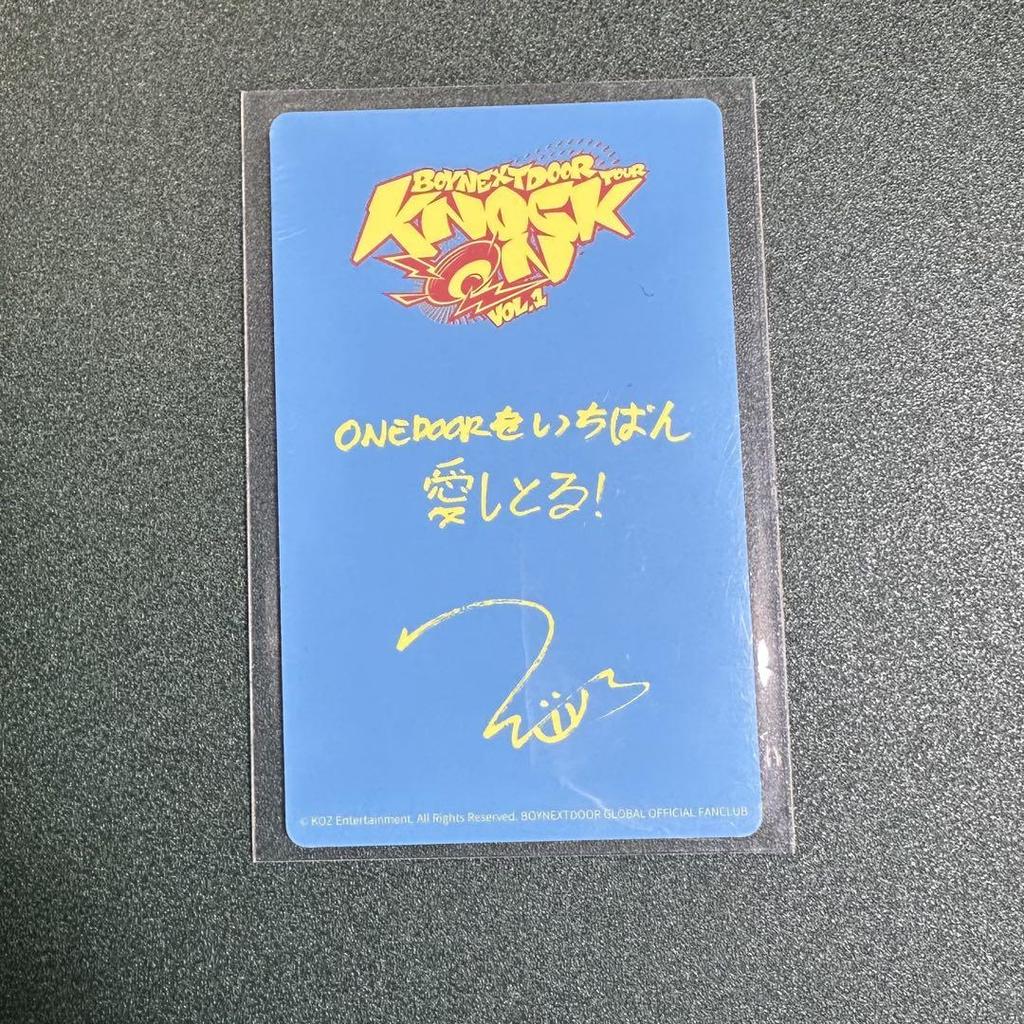 BOYNEXTDOOR TOUR
KNOCK
ON
VOL.1
ONEDOORをいちばん
愛しとる!
© KOZ Entertainment. All Rights Reserved. BOYNEXTDOOR GLOBAL OFFICIAL FANCLUB